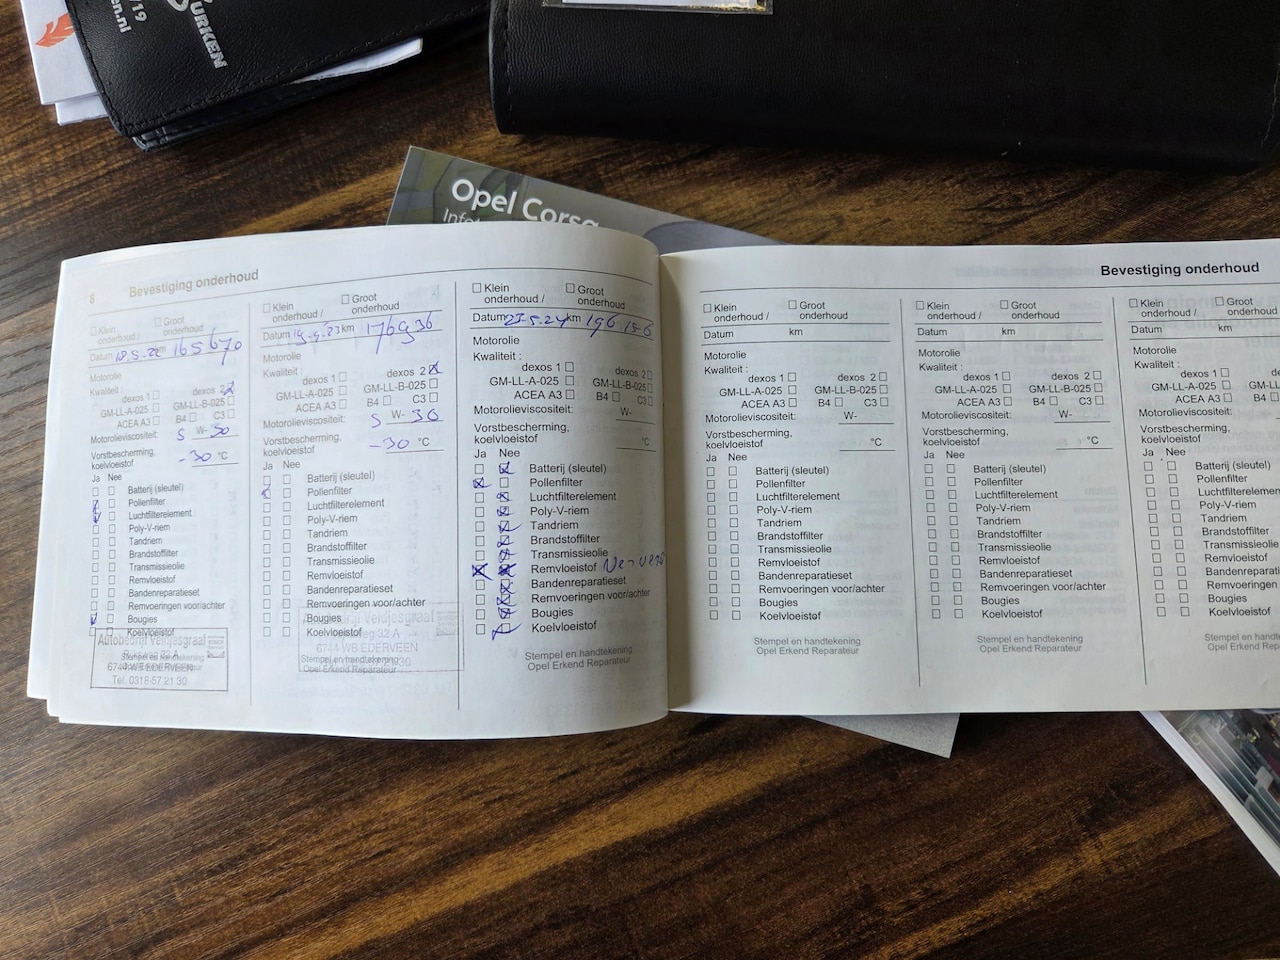 /19
en.nl
URKEN
Opel Corsa
8 Bevestiging onderhoud
Klein onderhoud / Groot onderhoud
Datum 18.5.22 km 165670
Motorolie
Kwaliteit :
dexos 1 dexos 2
GM-LL-A-025 GM-LL-B-025
ACEA A3 B4 C3
Motorolieviscositeit: 5 W- 30
Vorstbescherming, koelvloeistof -30 °C
Ja Nee
Batterij (sleutel)
Pollenfilter
Luchtfilterelement
Poly-V-riem
Tandriem
Brandstoffilter
Transmissieolie
Remvloeistof
Bandenreparatieset
Remvoeringen voor/achter
Bougies
Koelvloeistof
Autobedrijf Veldjesgraaf
6744 WB EDERVEEN
Tel. 0318-57 21 30
Klein onderhoud / Groot onderhoud
Datum km 176936
Motorolie
Kwaliteit :
dexos 1 dexos 2
GM-LL-A-025 GM-LL-B-025
ACEA A3 B4 C3
Motorolieviscositeit: 5 W- 30
Vorstbescherming, koelvloeistof -30 °C
Ja Nee
Batterij (sleutel)
Pollenfilter
Luchtfilterelement
Poly-V-riem
Tandriem
Brandstoffilter
Transmissieolie
Remvloeistof
Bandenreparatieset
Remvoeringen voor/achter
Bougies
Koelvloeistof
6744 WB EDERVEEN
Stempel en handtekening
Opel Erkend Reparateur
Klein onderhoud / Groot onderhoud
Datum 23.5.24 km 196 156
Motorolie
Kwaliteit :
dexos 1 dexos 2
GM-LL-A-025 GM-LL-B-025
ACEA A3 B4 C3
Motorolieviscositeit: W-
Vorstbescherming, koelvloeistof °C
Ja Nee
Batterij (sleutel)
Pollenfilter
Luchtfilterelement
Poly-V-riem
Tandriem
Brandstoffilter
Transmissieolie
Remvloeistof
Bandenreparatieset
Remvoeringen voor/achter
Bougies
Koelvloeistof
Stempel en handtekening
Opel Erkend Reparateur
Bevestiging onderhoud
Klein onderhoud / Groot onderhoud
Datum km
Motorolie
Kwaliteit :
dexos 1 dexos 2
GM-LL-A-025 GM-LL-B-025
ACEA A3 B4 C3
Motorolieviscositeit: W-
Vorstbescherming, koelvloeistof °C
Ja Nee
Batterij (sleutel)
Pollenfilter
Luchtfilterelement
Poly-V-riem
Tandriem
Brandstoffilter
Transmissieolie
Remvloeistof
Bandenreparatieset
Remvoeringen voor/achter
Bougies
Koelvloeistof
Stempel en handtekening
Opel Erkend Reparateur
Klein onderhoud / Groot onderhoud
Datum km
Motorolie
Kwaliteit :
dexos 1 dexos 2
GM-LL-A-025 GM-LL-B-025
ACEA A3 B4 C3
Motorolieviscositeit: W-
Vorstbescherming, koelvloeistof °C
Ja Nee
Batterij (sleutel)
Pollenfilter
Luchtfilterelement
Poly-V-riem
Tandriem
Brandstoffilter
Transmissieolie
Remvloeistof
Bandenreparatieset
Remvoeringen voor/achter
Bougies
Koelvloeistof
Stempel en handtekening
Opel Erkend Reparateur
Klein onderhoud / Groot onderhoud
Datum km
Motorolie
Kwaliteit :
dexos 1
GM-LL-A-025 GM-LL-B
ACEA A3 B4
Motorolieviscositeit: W-
Vorstbescherming, koelvloeistof
Ja Nee
Batterij (sleutel)
Pollenfilter
Luchtfilterelement
Poly-V-riem
Tandriem
Brandstoffilter
Transmissieolie
Remvloeistof
Bandenreparatieset
Remvoeringen voor/
Bougies
Koelvloeistof
Stempel en handtekening
Opel Erkend Reparat